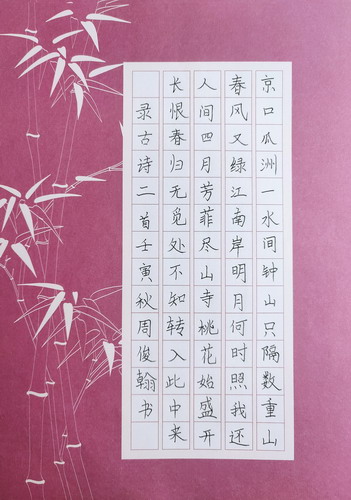 京口瓜洲一水间钟山只隔数重山
春风又绿江南岸明月何时照我还
人间四月芳菲尽山寺桃花始盛开
长恨春归无觅处不知转入此中来
录古诗二首壬寅秋周俊翰书